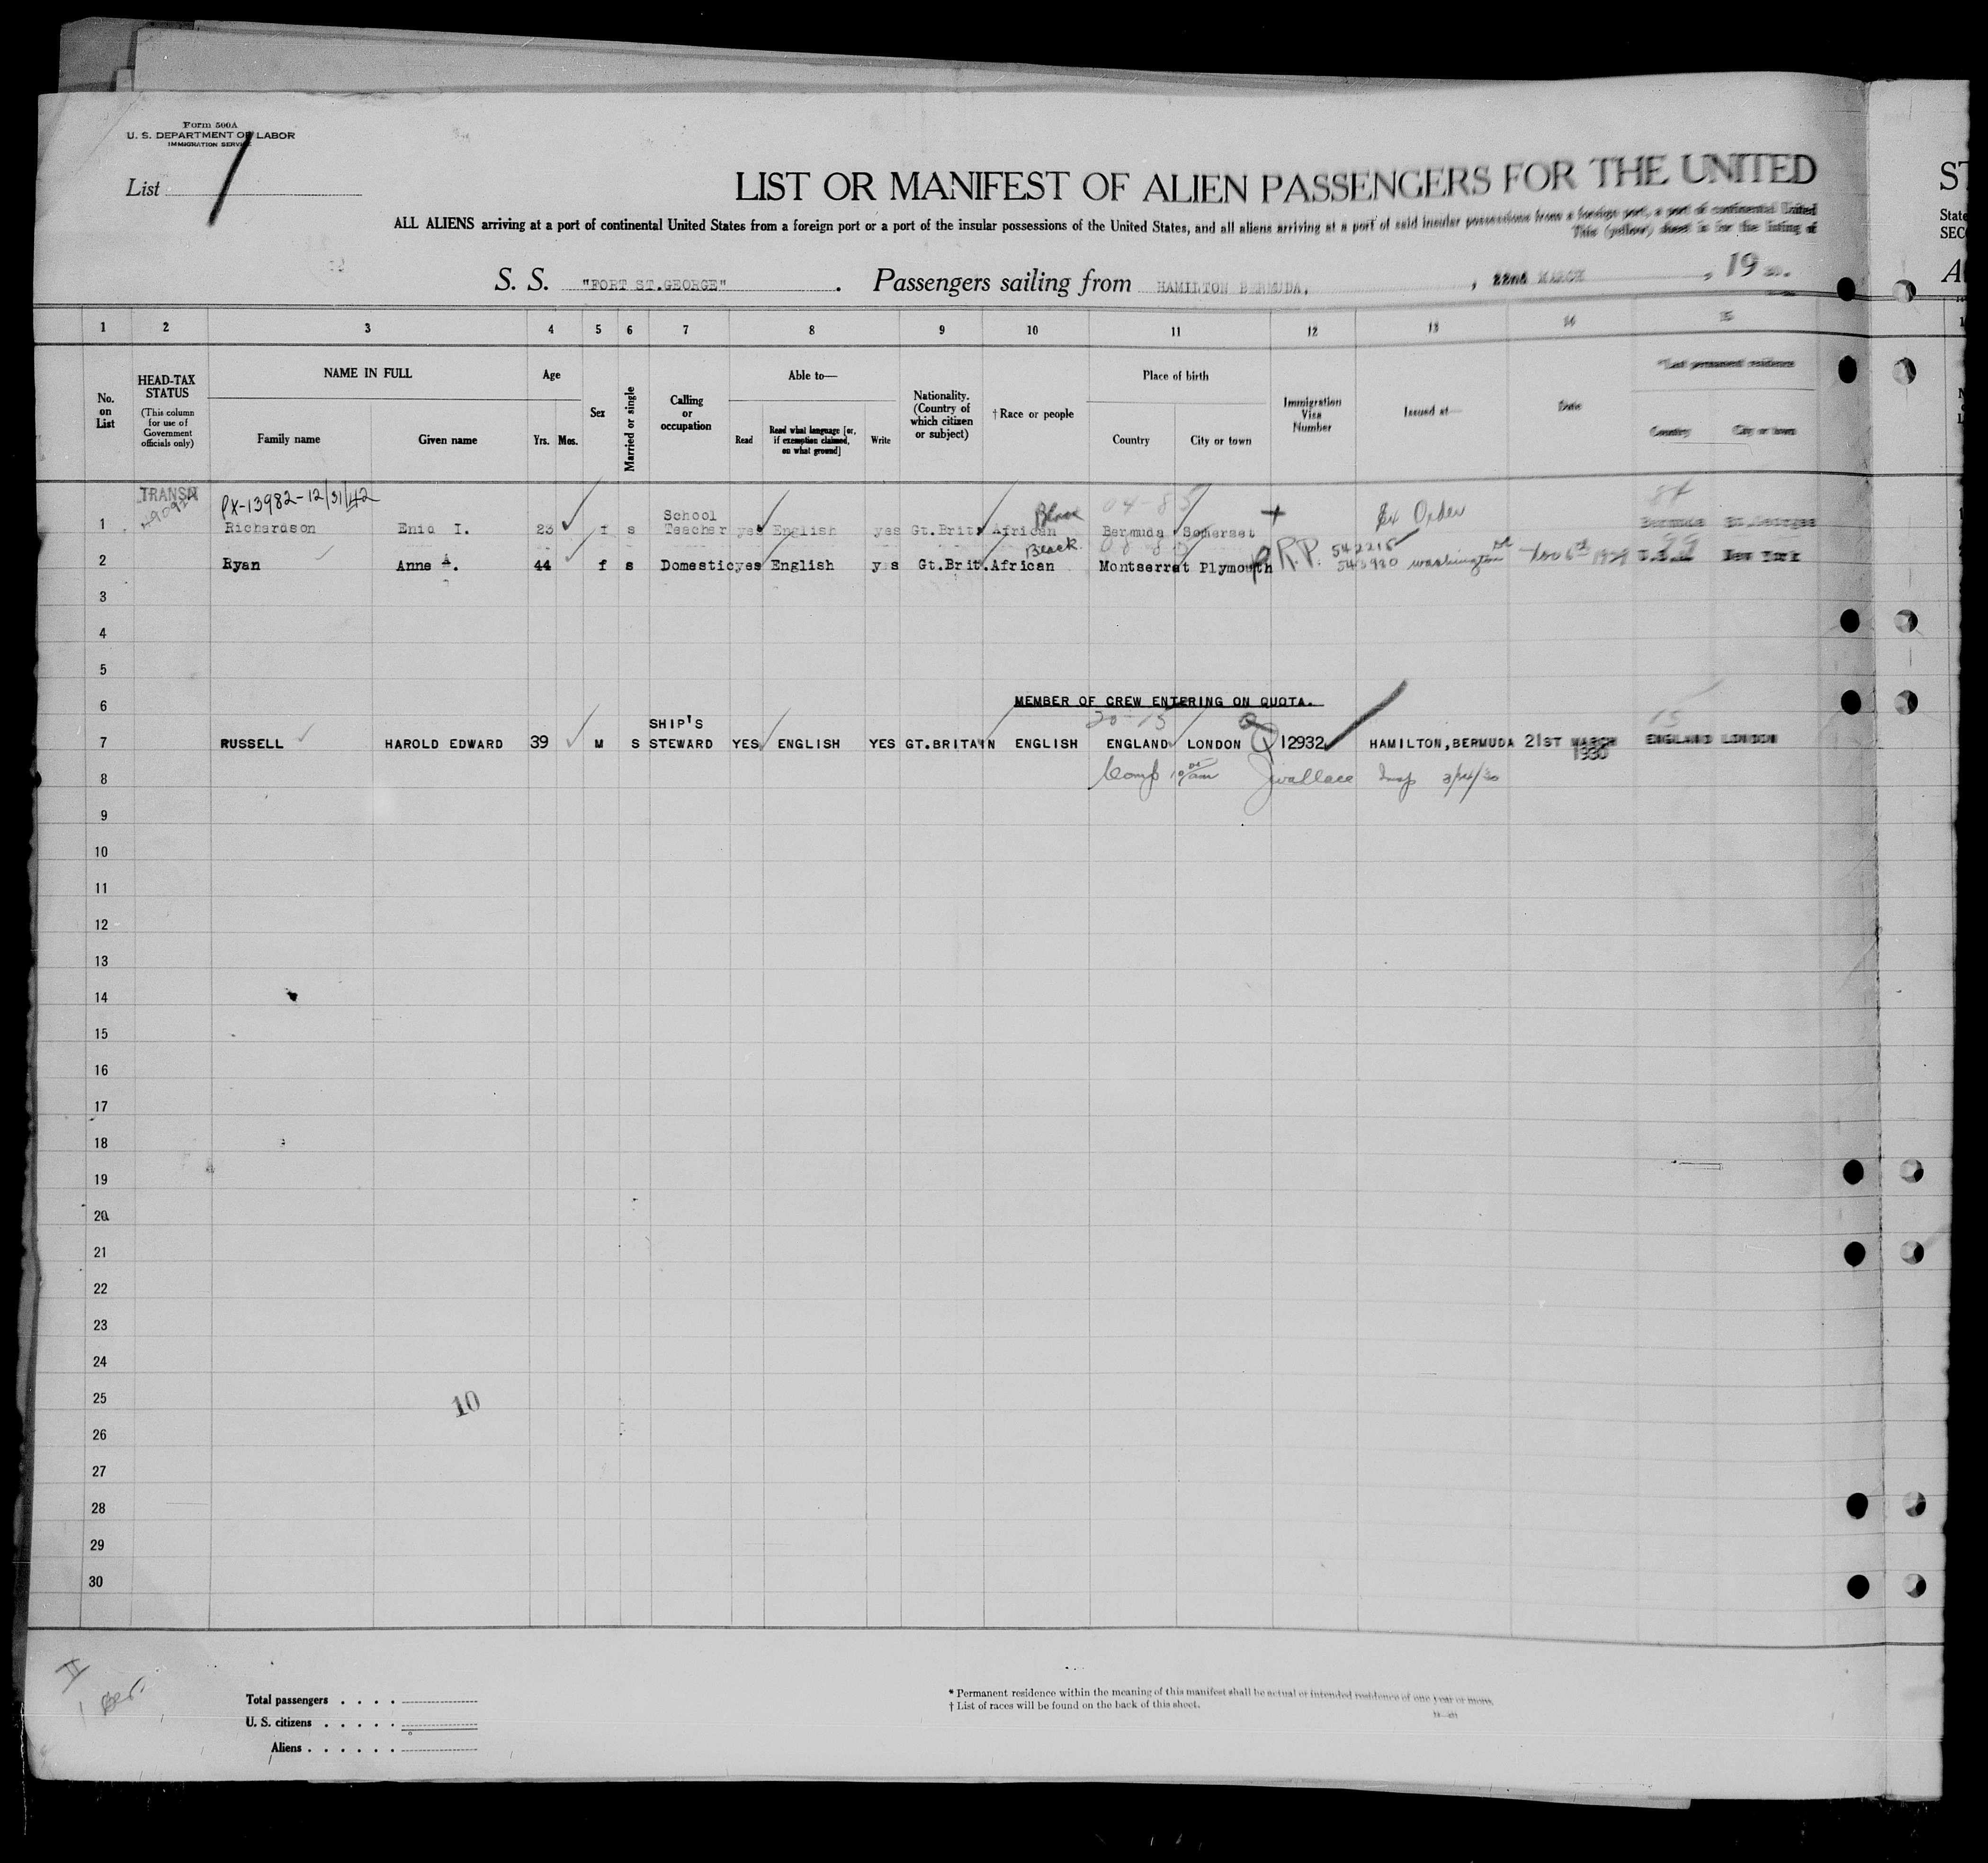 Form 500A
U. S. DEPARTMENT OF LABOR
IMMIGRATION SERVICE
List
LIST OR MANIFEST OF ALIEN PASSENGERS FOR THE UNITED
ALL ALIENS arriving at a port of continental United States from a foreign port or a port of the insular possessions of the United States, and all aliens arriving at a port of said insular possessions from a foreign port, a port of continental United
This (yellow) sheet is for the listing of
S. S. "FORT ST.GEORGE" . Passengers sailing from HAMILTON BERMUDA, , 22nd MARCH , 19 30.
ST
State
SEC
A
1 2 3 4 5 6 7 8 9 10 11 12 13 14 15
No. on List
HEAD-TAX STATUS
(This column for use of Government officials only)
NAME IN FULL
Family name Given name
Age
Yrs. Mos.
Sex
Married or single
Calling or occupation
Able to—
Read
Read what language [or, if exemption claimed, on what ground]
Write
Nationality. (Country of which citizen or subject)
†Race or people
Place of birth
Country City or town
Immigration Visa Number
Issued at—
Date
*Last permanent residence
Country City or town
TRANSIT
PX-13982-12/31/42
1 Richardson Enid I. 23 f s School Teacher yes English yes Gt.Brit. African Bermuda Somerset Ex Order Bermuda St.Georges
Black
2 Ryan Anne A. 44 f s Domestic yes English y s Gt.Brit. African Montserrat Plymouth R.P. 542215 Washington DC U.S.A. New York
3
4
5
6 MEMBER OF CREW ENTERING ON QUOTA.
20-15
15
7 RUSSELL HAROLD EDWARD 39 M S SHIP'S STEWARD YES ENGLISH YES GT.BRITAIN ENGLISH ENGLAND LONDON Q 12932 HAMILTON,BERMUDA 21ST MARCH 1930 ENGLAND LONDON
8 J Wallace Insp 3/24/30
9
10
11
12
13
14
15
16
17
18
19
20
21
22
23
24
25
10
26
27
28
29
30
II
Total passengers . . . .
U. S. citizens . . . . .
Aliens . . . . . .
* Permanent residence within the meaning of this manifest shall be actual or intended residence of one year or more.
† List of races will be found on the back of this sheet.